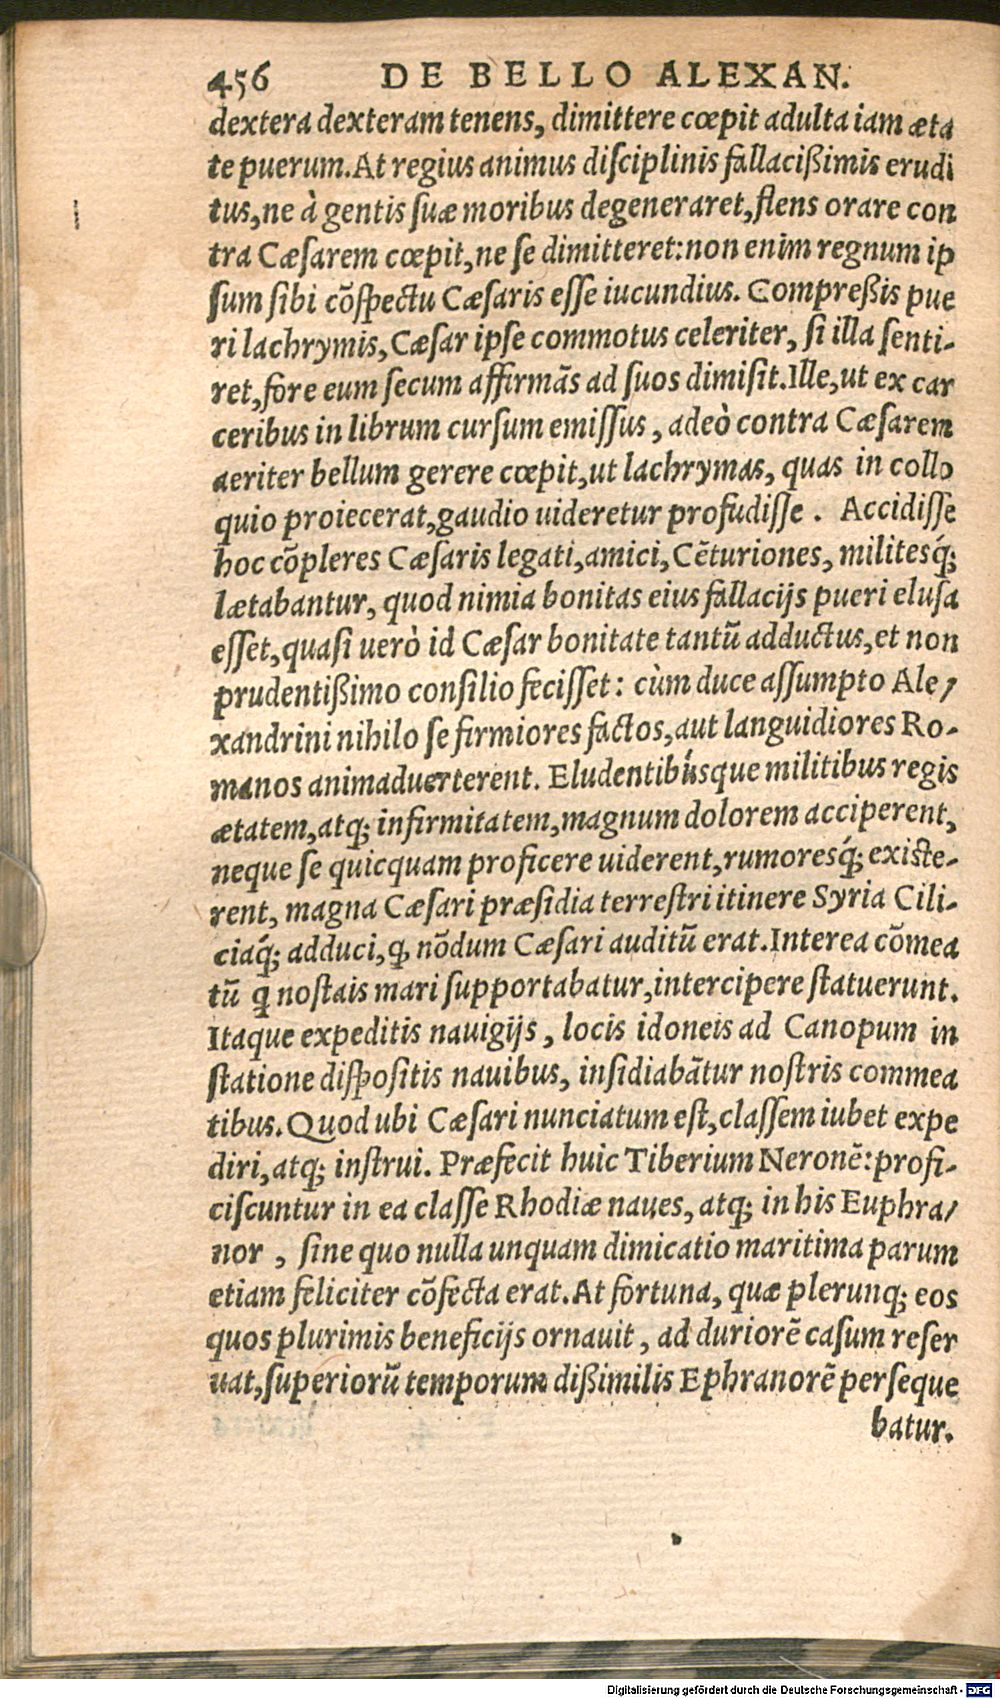 456 DE BELLO ALEXAN.
dextera dexteram tenens, dimittere cœpit adulta iam æta
te puerum. At regius animus diſciplinis fallacißimis erudi
tus, ne à gentis ſuæ moribus degeneraret, flens orare con
tra Cæſarem cœpit, ne ſe dimitteret: non enim regnum ip
ſum ſibi cōſpectu Cæſaris eſſe iucundius. Compreßis pue
ri lachrymis, Cæſar ipſe commotus celeriter, ſi illa ſenti-
ret, fore eum ſecum affirmās ad ſuos dimiſit. Ille, ut ex car
ceribus in librum curſum emiſſus, adeò contra Cæſarem
aeriter bellum gerere cœpit, ut lachrymas, quas in collo
quio proiecerat, gaudio uideretur profudiſſe. Accidiſſe
hoc cōpleres Cæſaris legati, amici, Cēturiones, militesq́;
lætabantur, quod nimia bonitas eius fallacijs pueri eluſa
eſſet, quaſi uerò id Cæſar bonitate tantū adductus, et non
prudentißimo conſilio feciſſet: cùm duce aſſumpto Ale/
xandrini nihilo ſe firmiores factos, aut languidiores Ro-
manos animaduerterent. Eludentibúsque militibus regis
ætatem, atq; infirmitatem, magnum dolorem acciperent,
neque ſe quicquam proficere uiderent, rumoresq́; exiſte-
rent, magna Cæſari præſidia terreſtri itinere Syria Cili-
ciaq́; adduci, ꝙ nōdum Cæſari auditū erat. Interea cōmea
tū q̄ noſtais mari ſupportabatur, intercipere ſtatuerunt.
Itaque expeditis nauigijs, locis idoneis ad Canopum in
ſtatione diſpoſitis nauibus, inſidiabātur noſtris commea
tibus. Quod ubi Cæſari nunciatum eſt, claſſem iubet expe
diri, atq; inſtrui. Præfecit huic Tiberium Neronē: profi-
ciſcuntur in ea claſſe Rhodiæ naues, atq; in his Euphra/
nor, ſine quo nulla unquam dimicatio maritima parum
etiam feliciter cōfecta erat. At fortuna, quæ plerunq; eos
quos plurimis beneficijs ornauit, ad duriorē caſum reſer
uat, ſuperiorū temporum dißimilis Ephranorē perſeque
batur.
Digitalisierung gefördert durch die Deutsche Forschungsgemeinschaft - DFG